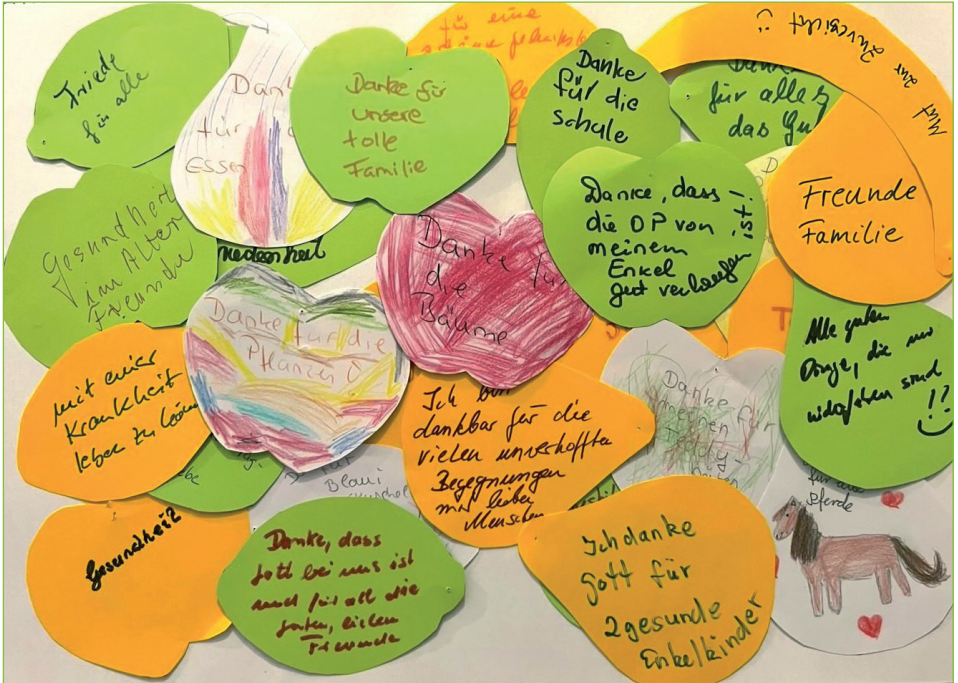 Friede
für alle
Dank
für
Essen
Danke für
unsere
tolle
Familie
für eine
Danke
für die
Schule
Danke
für alles
das Gu
Mut zur Zuversicht
Freunde
Familie
Gesundheit
im Alter
Freunde
Danke für
die
Bäume
Danke, dass
die OP von
meinem
Enkel
gut verlaufen
ist!
Danke für die
Pflanzen
Alle guten
Dinge, die mir
widerfahren sind
!!
mit einer
Krankheit
leben zu können
Ich bin
dankbar für die
vielen unverhofften
Begegnungen
mit lieben
Menschen
Danke für
meinen
Teddy-
Blaui
für die
Pferde
Gesundheit
Danke, dass
Gott bei uns ist
und für all die
guten, lieben
Freunde
Ich danke
Gott für
2 gesunde
Enkelkinder